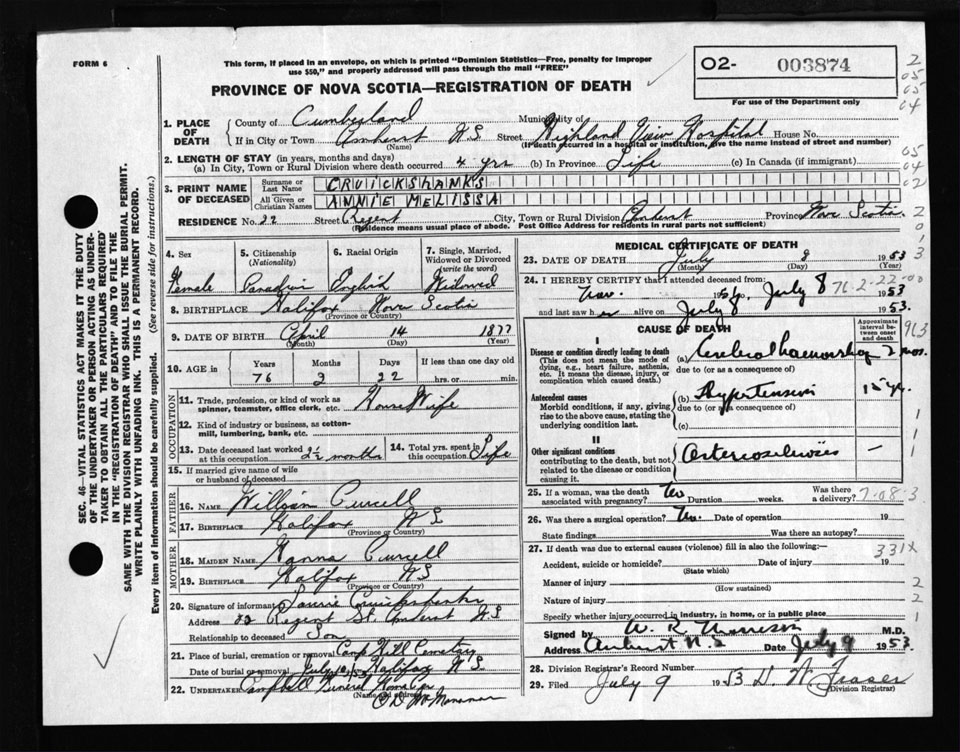 FORM 6
This form, if placed in an envelope, on which is printed "Dominion Statistics—Free, penalty for improper
use $50," and properly addressed will pass through the mail "FREE"
PROVINCE OF NOVA SCOTIA—REGISTRATION OF DEATH
O2- 003874
For use of the Department only
2
05
05
04
05
04
02
2
0
1
3
1. PLACE OF DEATH
County of Cumberland Municipality of
If in City or Town Amherst N S Street Highland View Hospital House No.
(Name) (If death occurred in a hospital or institution, give the name instead of street and number)
2. LENGTH OF STAY (in years, months and days)
(a) In City, Town or Rural Division where death occurred 4 yrs (b) In Province Life (c) In Canada (if immigrant)
3. PRINT NAME OF DECEASED
Surname or Last Name CRUICKSHANKS
All Given or Christian Names ANNIE MELISSA
RESIDENCE No. 22 Street Regent City, Town or Rural Division Amherst Province Nova Scotia.
(Residence means usual place of abode. Post Office Address for residents in rural parts not sufficient)
4. Sex
Female
5. Citizenship (Nationality)
Canadian
6. Racial Origin
English
7. Single, Married, Widowed or Divorced (write the word)
Widowed
8. BIRTHPLACE Halifax Nova Scotia
(Province or Country)
9. DATE OF BIRTH April 14 1877
(Month) (Day) (Year)
10. AGE in Years Months Days If less than one day old
76 2 22 hrs. or min.
OCCUPATION
11. Trade, profession, or kind of work as spinner, teamster, office clerk, etc. House Wife
12. Kind of industry or business, as cotton-mill, lumbering, bank, etc.
13. Date deceased last worked at this occupation 2½ months
14. Total yrs. spent in this occupation Life
15. If married give name of wife or husband of deceased
FATHER
16. Name William Purcell
17. BIRTHPLACE Halifax N S
(Province or Country)
MOTHER
18. MAIDEN NAME Hanna Purcell
19. BIRTHPLACE Halifax NS
(Province or Country)
20. Signature of informant Cruickshanks
Address 22 Regent St. Amherst NS
Relationship to deceased Son
21. Place of burial, cremation or removal Camp Hill Cemetary
Date of burial or removal July 10/53 Halifax N S
22. UNDERTAKER Campbell Funeral Home
(Name and Address)
MEDICAL CERTIFICATE OF DEATH
23. DATE OF DEATH July 8 1953
(Month) (Day) (Year)
24. I HEREBY CERTIFY that I attended deceased from:
Nov. to July 8 1953
76-2-22-00
and last saw her alive on July 8 1953.
CAUSE OF DEATH
Approximate interval between onset and death
963
I
Disease or condition directly leading to death
(This does not mean the mode of dying, e.g., heart failure, asthenia, etc. It means the disease, injury, or complication which caused death.)
(a) Cerebral haemorrhage 2 mos.
due to (or as a consequence of)
Antecedent causes
Morbid conditions, if any, giving rise to the above cause, stating the underlying condition last.
(b) Hypertension 15 yr.
due to (or as a consequence of)
(c)
II
Other significant conditions
contributing to the death, but not related to the disease or condition causing it.
Arteriosclerosis —
1
1
1
25. If a woman, was the death associated with pregnancy? No Duration weeks. Was there a delivery?
7-08 3
26. Was there a surgical operation? No. Date of operation 19
State findings Was there an autopsy?
27. If death was due to external causes (violence) fill in also the following:—
331X
Accident, suicide or homicide? Date of injury 19
(State which)
Manner of injury 2
(How sustained)
Nature of injury 2
Specify whether injury occurred in industry, in home, or in public place 1
Signed by W. R. Morrison M.D.
Address Amherst N.S Date July 9 1953
28. Division Registrar's Record Number
29. Filed July 9 1953 D. W. Fraser
(Division Registrar)
SEC. 46—VITAL STATISTICS ACT MAKES IT THE DUTY
OF THE UNDERTAKER OR PERSON ACTING AS UNDER-
TAKER TO OBTAIN ALL THE PARTICULARS REQUIRED
IN THE "REGISTRATION OF DEATH" AND TO FILE THE
SAME WITH THE DIVISION REGISTRAR WHO SHALL ISSUE THE BURIAL PERMIT.
WRITE PLAINLY WITH UNFADING INK. THIS IS A PERMANENT RECORD.
Every item of Information should be carefully supplied. (See reverse side for instructions.)